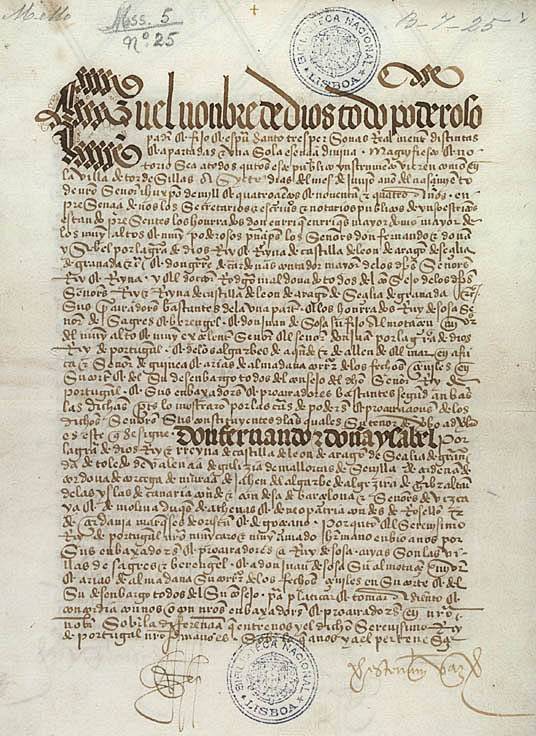 Mello
Mss. 5
nº 25
B-7-25
BIBLIOTECA NACIONAL LISBOA
En el nonbre de dios todo poderoso
padre & fijo & espu santo tres personas realmente distintas
& apartadas & una sola esencia divina
torio sea a todos quantos este publico ynstrumento vieren como en
la villa de tordesillas a siete dias del mes de junio año del nasçimiento
de nro Señor ihu xpo de mill & quatroçientos & noventa & quatro años en
presençia de nos los secretarios & escrivanos & notarios publicos de yuso escriptos
estando presentes los honrados don enrique enriques mayordomo mayor de
los muy altos & muy poderosos prinçipes los Señores don fernando & doña
ysabel por la gra de dios Rey & Reyna de castilla de leon de aragon de seçilia
de granada & don gutierre de cardenas contador mayor de los dichos Señores
Rey & Reyna y el dotor Rodrigo maldonado todos del consejo de los dichos
Señores Rey & Reyna de castilla de leon de aragon de seçilia de granada
sus procuradores bastantes de la una parte & los honrados Ruy de sosa se
ñor de sagres & berengel & don juan de sosa su fijo almotaçen mayor
del muy alto & muy exçelente Señor el Señor don juan por la graçia de dios
Rey de portugal & de los algarbes de aquende & de allende el mar en afri
ca & Señor de guinea & arias de almadana
del su desenbargo todos del consejo del dicho Señor Rey de
portugal & sus enbaxadores & procuradores bastantes segund anbas
las dichas partes lo mostraron por las cartas de poderes & procuraçiones de los
dichos Señores sus constituyentes de las quales su tenor de verbo ad verbum
es este que se sigue don fernando & doña ysabel por
la graçia de dios Rey & Reyna de castilla de leon de aragon de seçilia de grana
da de toledo de valençia de galizia de mallorcas de sevilla de çerdeña de
cordova de corçega de murçia de jahen del algarbe de algezira de gibraltar
de las yslas de canaria conde & condesa de barçelona & Señores de vizca
ya & de molina duques de athenas & de neopatria condes de Rosellon
& de çerdania marqueses de oristan & de goçiano Por quanto el Serenisimo
Rey de portugal nro muy caro & muy amado hermano enbio a nos por
sus enbaxadores & procuradores a Ruy de sosa cuyas son las vi
llas de sagres & berengel & a don juan de sosa su almotaçen mayor
& arias de almadana
su desenbargo todos del su consejo para platicar & tomar asiento &
concordia con nos o con nros enbaxadores & procuradores en nro
nonbre sobre la diferençia que entre nos y el dicho Serenisimo Rey
de portugal nro hermano es sobre lo que a nos y a el perteneçe
BIBLIOTECA NACIONAL LISBOA